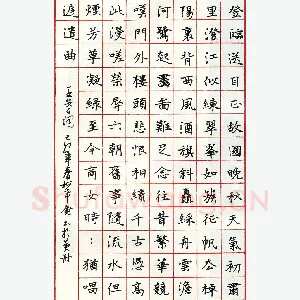 登臨送目正故國晚秋天氣初肅
里澄江似練翠峯如簇征帆去棹
陽裏背西風酒旗斜矗綵舟雲澹
河鷺起畫圖難足念往昔繁華競
嘆門外樓頭悲恨相續千古憑高
此謾嗟榮辱六朝舊事隨流水但
煙芳草凝綠至今商女時：猶唱
遺曲
王安石詞